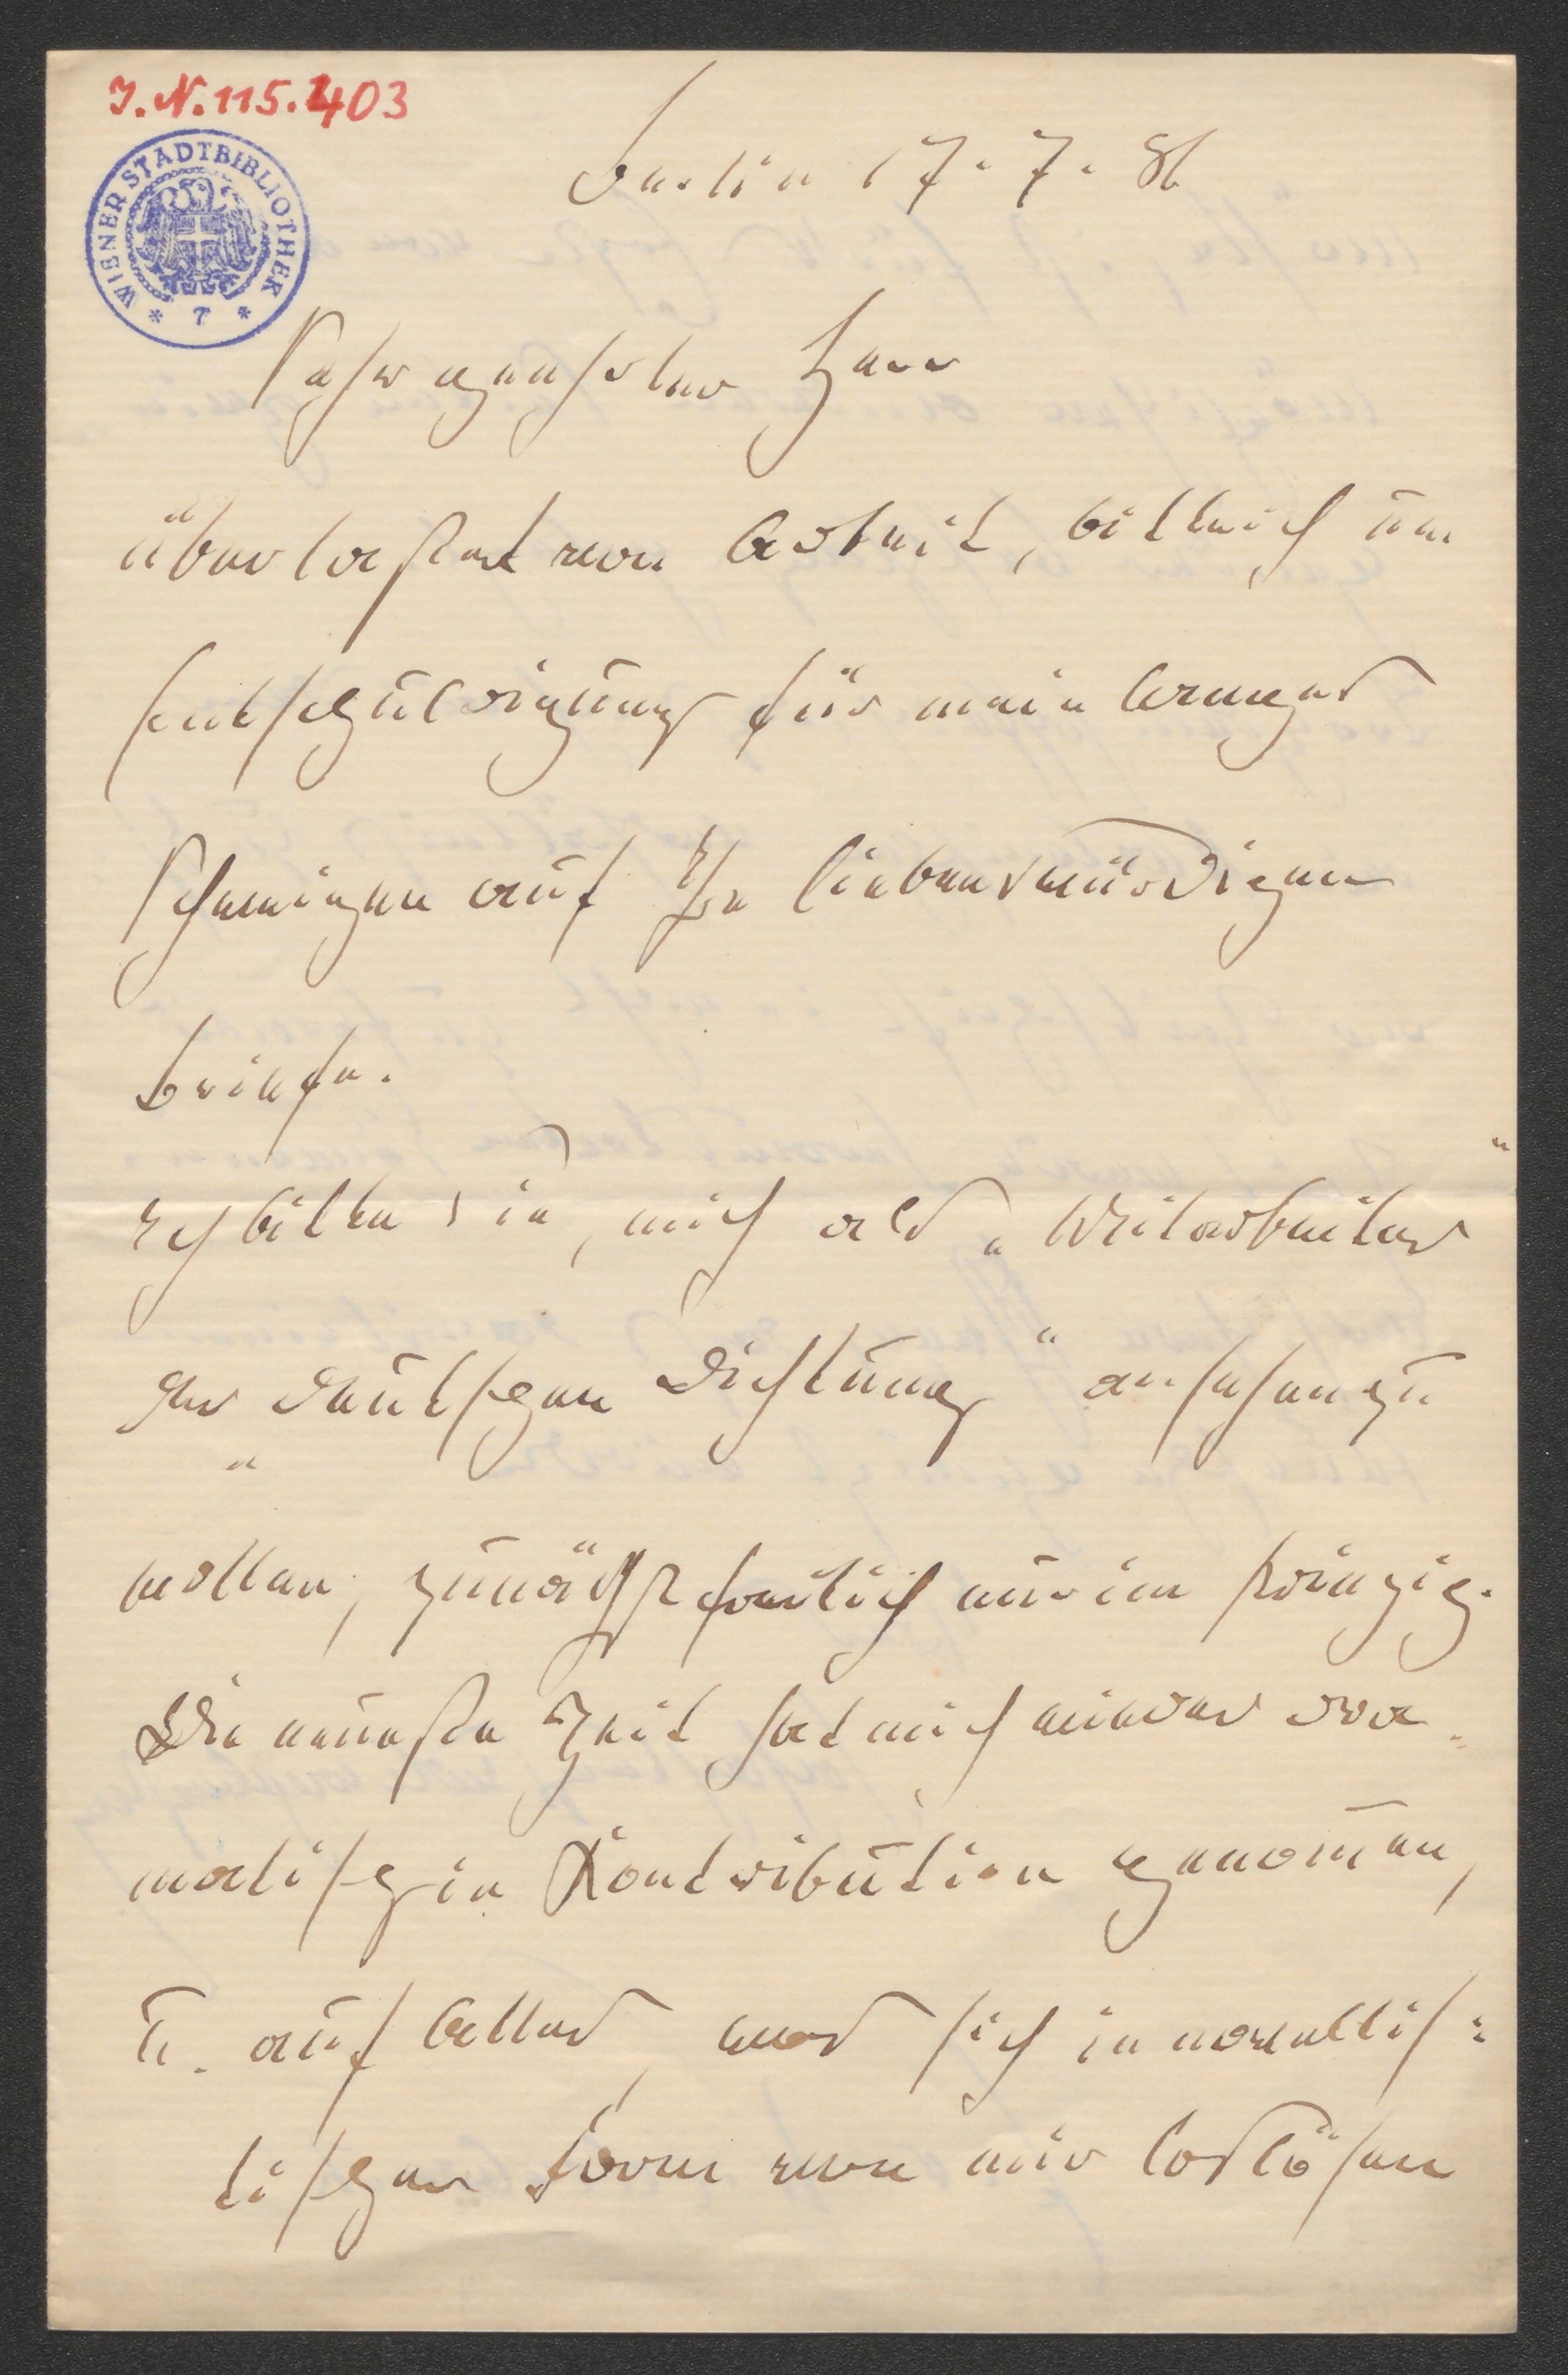 I.N. 115.403
WIENER STADTBIBLIOTHEK
* 7 *
Berlin 17. 7. 86
Sehr geehrter Herr
überlastet von Arbeit, bitte ich um
Entschuldigung für mein langes
Schweigen auf Ihre liebenswürdigen
Briefe.
Ich bitte Sie, mich als „Mitarbeiter“
der „Deutschen Dichtung“ ansehen zu
wollen, zunächst freilich nur im Prinzip.
Die neueste Zeit hat mich wieder dra-
matisch in Kontribution genommen,
u. auf Alles, was sich in novellis-
tischer Form von mir loslösen